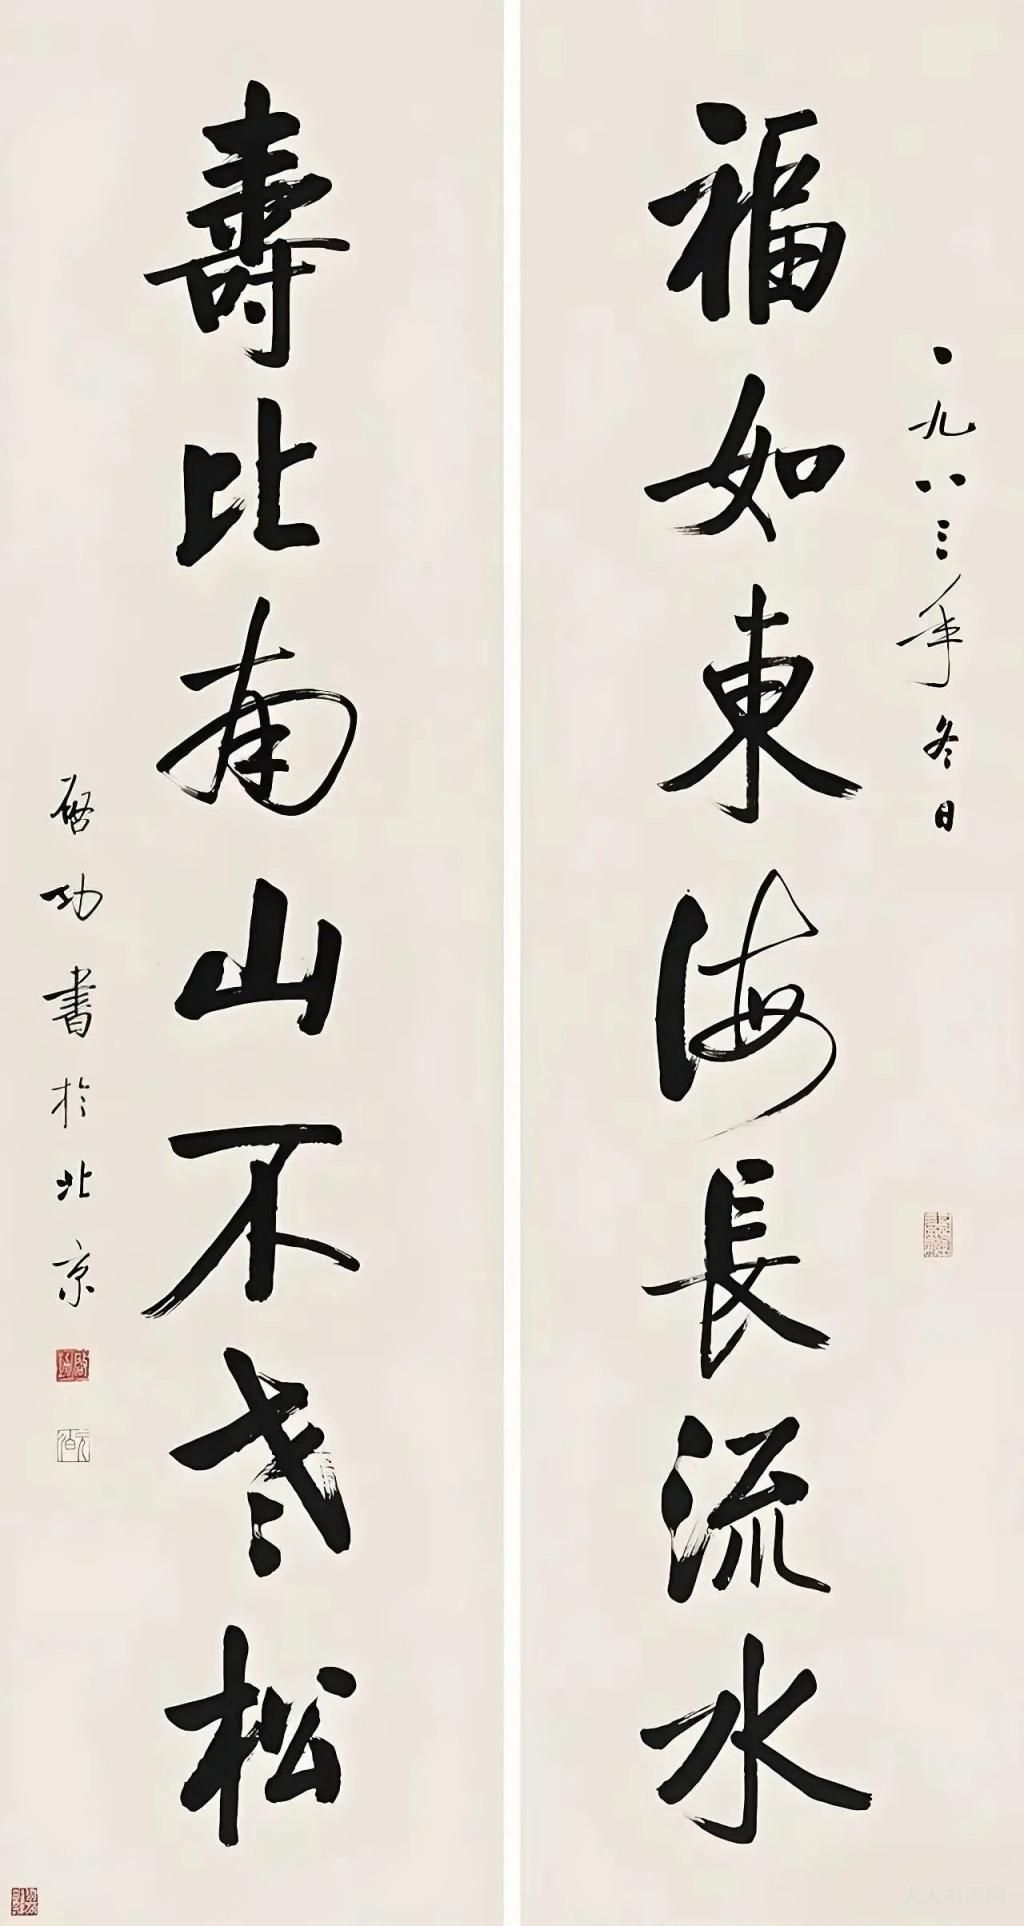 一九八三年冬日
福如東海長流水
壽比南山不老松
啓功書於北京
人人书画网